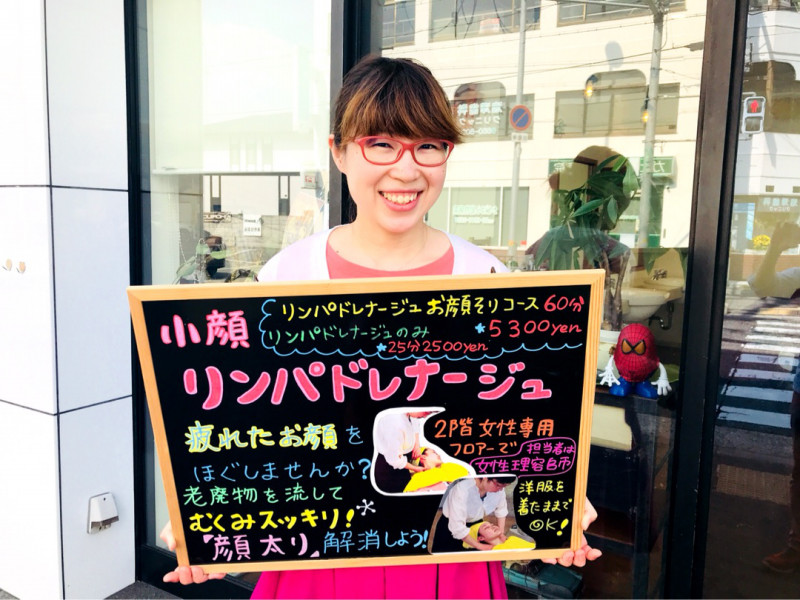 小顔
リンパドレナージュ お顔そりコース 60分
*5300yen
リンパドレナージュのみ
*25分2500yen
リンパドレナージュ
疲れたお顔を
ほぐしませんか?
老廃物を流して
むくみスッキリ!*
「顔太り」解消しよう!
2階女性専用
フロアーで
担当者は
女性理容師
洋服を
着たままで
OK!
クリニック